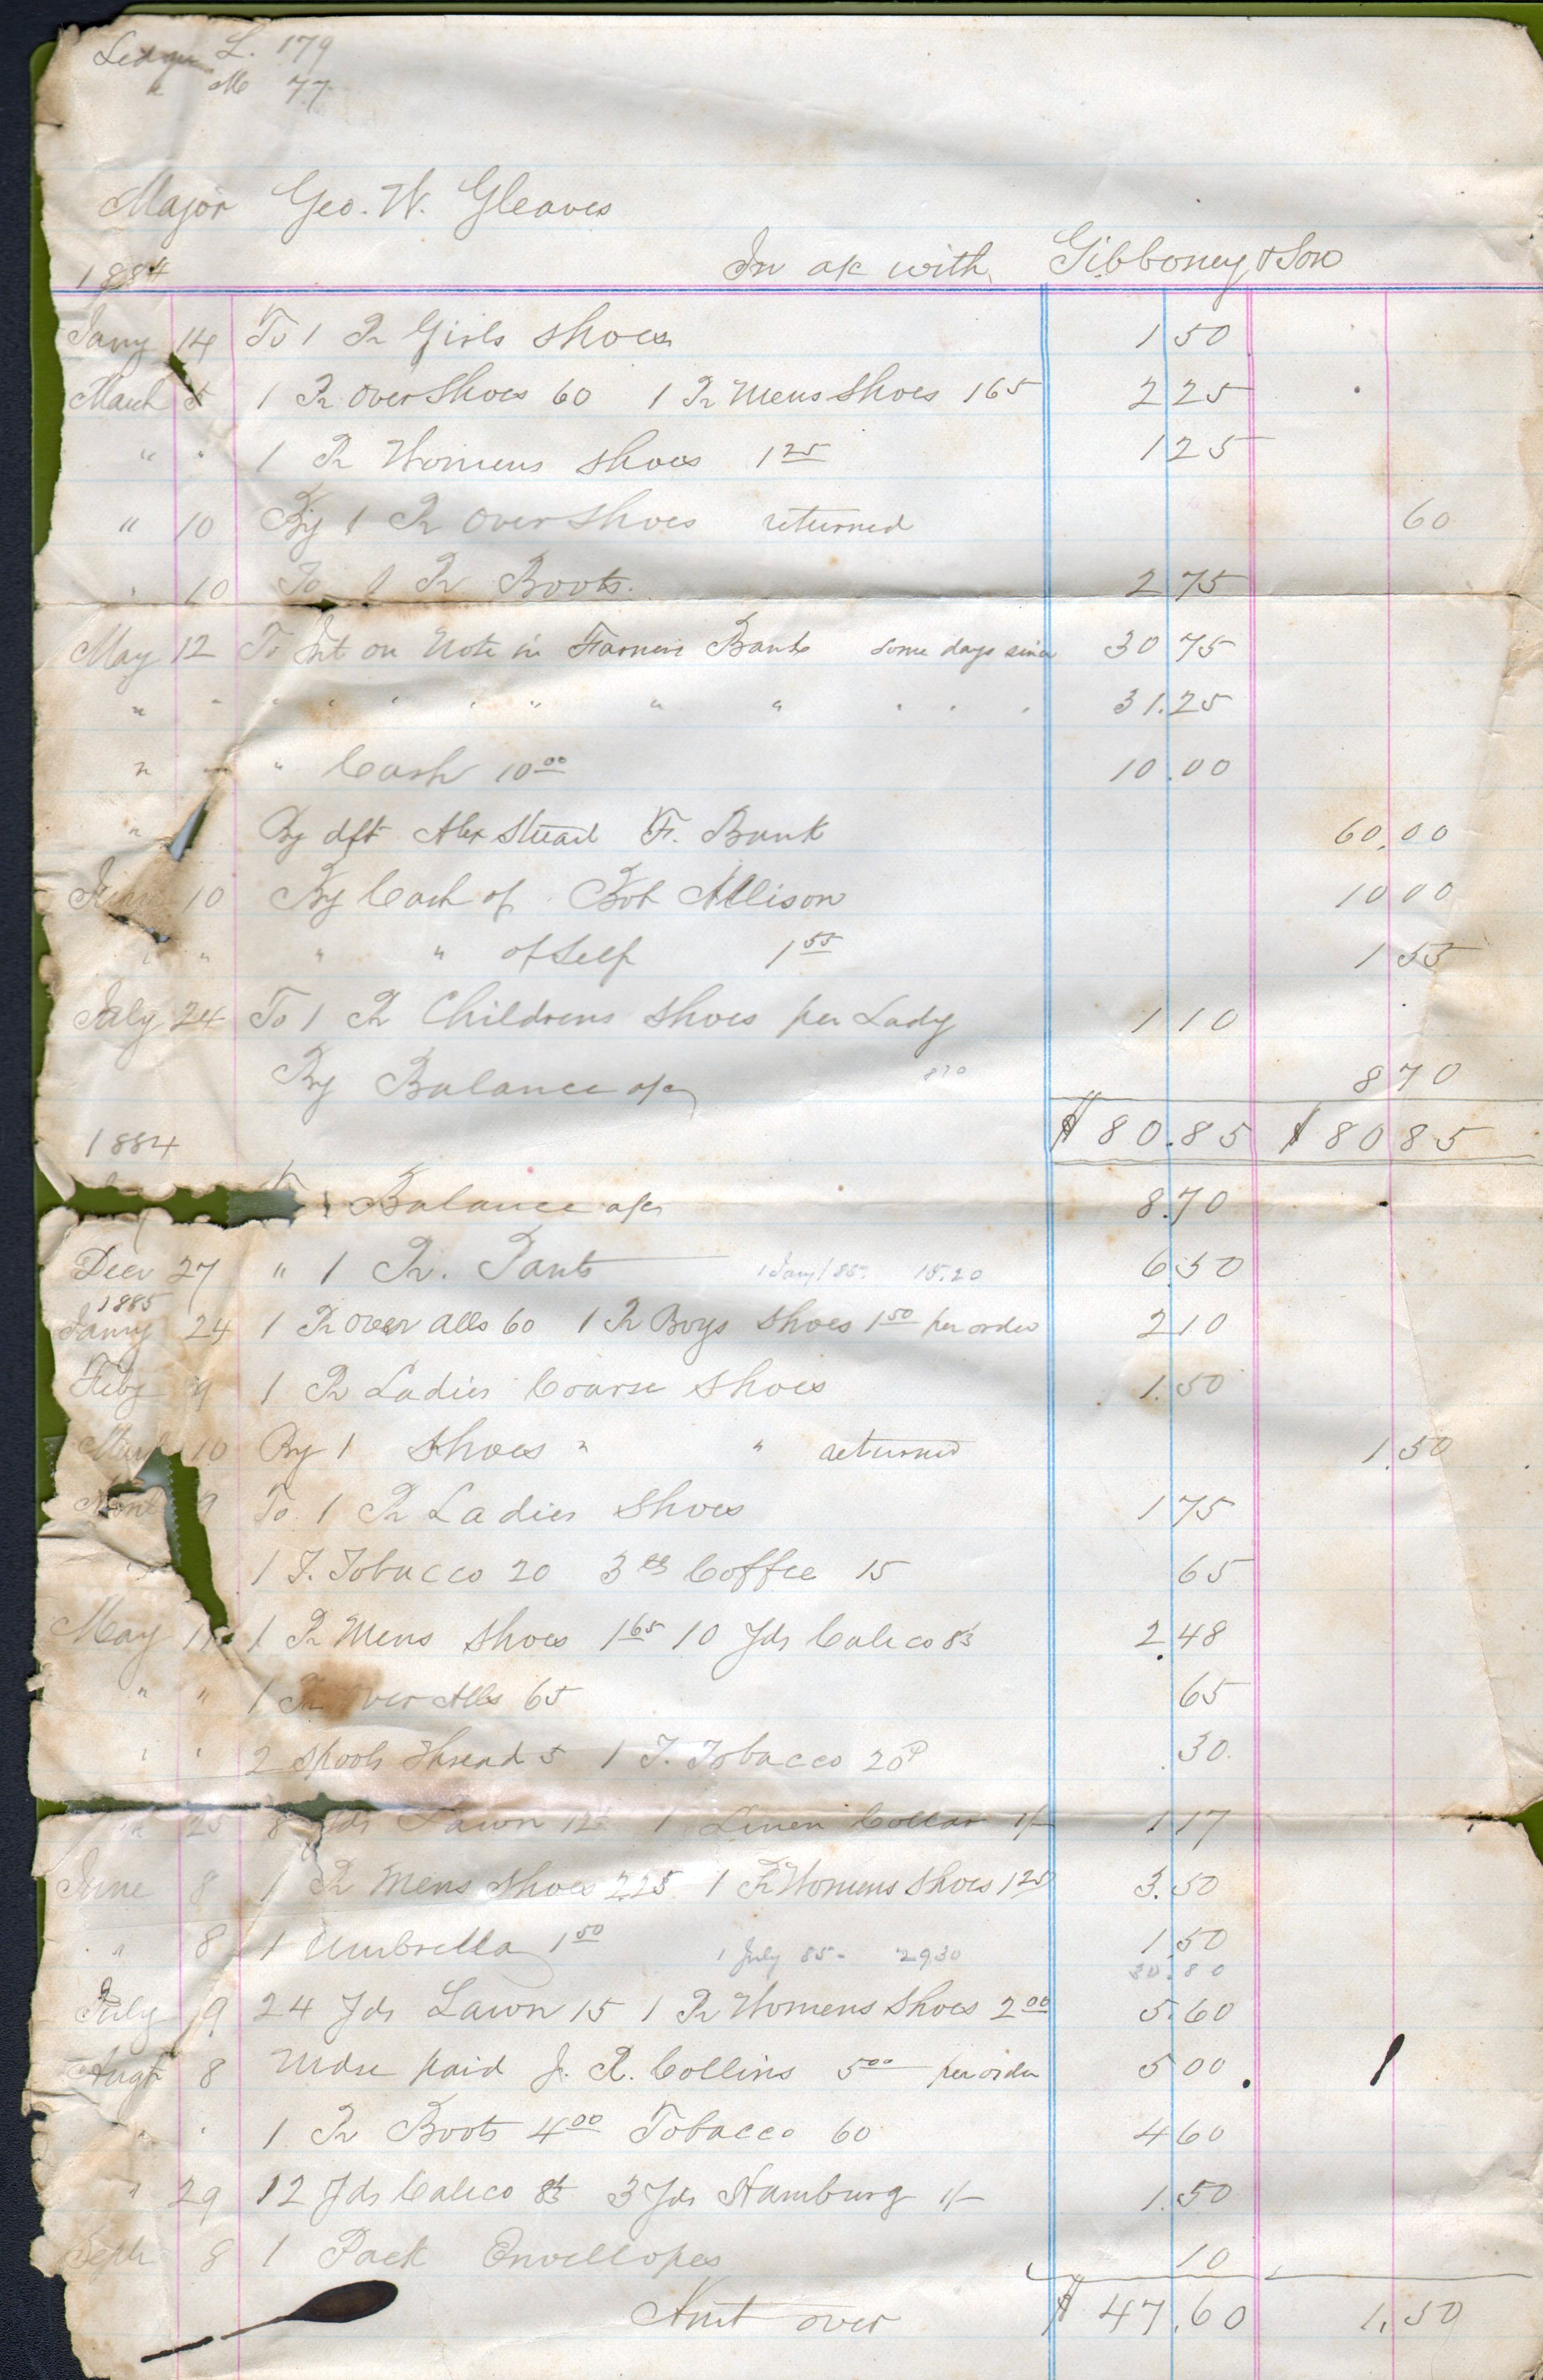 Ledger L. 179
" M 77
Major Geo. W. Gleaves
1884 In a/c with Gibboney & Son
Jany 14 To 1 Pr Girls Shoes 1 50
March 5 1 Pr Over Shoes 60 1 Pr Mens Shoes 165 2 25
" " 1 Pr Womens Shoes 1 25 1 25
" 10 By 1 Pr Over Shoes returned 60
" 10 To 1 Pr Boots. 2 75
May 12 To Int on Note in Farmers Bank some days since 30 75
" " " " " " " " " " " " 31.25
" " " Cash 10 00 10.00
" By dft Alex Stuart F. Bank 60.00
10 By Cash of Bob Allison 10 00
" " " " of Self 1 55 1 55
July 24 To 1 Pr Childrens Shoes per Lady 1 10
By Balance a/c 870 8 70
$ 80.85 $ 80 85
1884
Balance a/c 8.70
Decr 27 " 1 Pr. Pants 1 Jany/85. 15.20 6.50
1885
Jany 24 1 Pr over alls 60 1 Pr Boys Shoes 1 50 per order 2 10
Feby 9 1 Pr Ladies Coarse Shoes 1.50
10 By 1 Shoes " " returned 1.50
9 To 1 Pr Ladies Shoes 1 75
1 T. Tobacco 20 3 lbs Coffee 15 65
May 11 1 Pr Mens Shoes 1 65 10 Yds Calico 8⅓ 2.48
" " 1 Pr Over Alls 65 65
" " 2 Spools Thread 5 1 T. Tobacco 20 .30
" 25 8 Yds Lawn 12 1 Linen Collar 1/- 1 17
June 8 1 Pr Mens Shoes 2 25 1 Pr Womens Shoes 1 25 3.50
" 8 1 Umbrella 1 50 1 July 85- 29 30 1 50
30.80
July 9 24 Yds Lawn 15 1 Pr Womens Shoes 2 00 5.60
Augt 8 Mdse paid J. R. Collins 5 00 per order 5 00
" " 1 Pr Boots 4 00 Tobacco 60 4 60
" 29 12 Yds Calico 8⅓ 3 Yds Hamburg 1/- 1.50
Sept 8 1 Pack Envellopes 10
Amt over $ 47.60 1.50